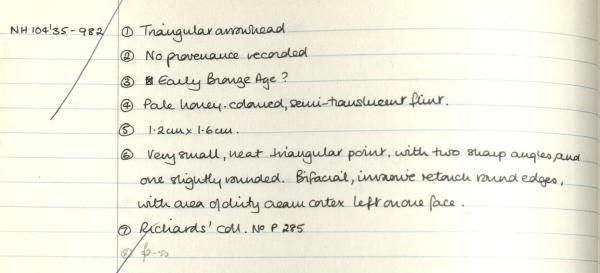 NH 104'35-982 ① Triangular arrowhead
② No provenance recorded
③ Early Bronze Age?
④ Pale honey-coloured, semi-translucent flint.
⑤ 1.2cm x 1.6cm.
⑥ Very small, neat triangular point, with two sharp angles, and
one slightly rounded. Bifacial, invasive retouch round edges,
with area of dirty cream cortex left on one face.
⑦ Richards' Coll. No P 285
⑧